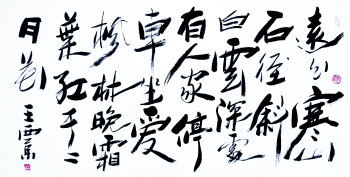 遠上寒山
石徑斜
白雲深處
有人家停
車坐愛
楓林晚霜
葉紅于二
月花